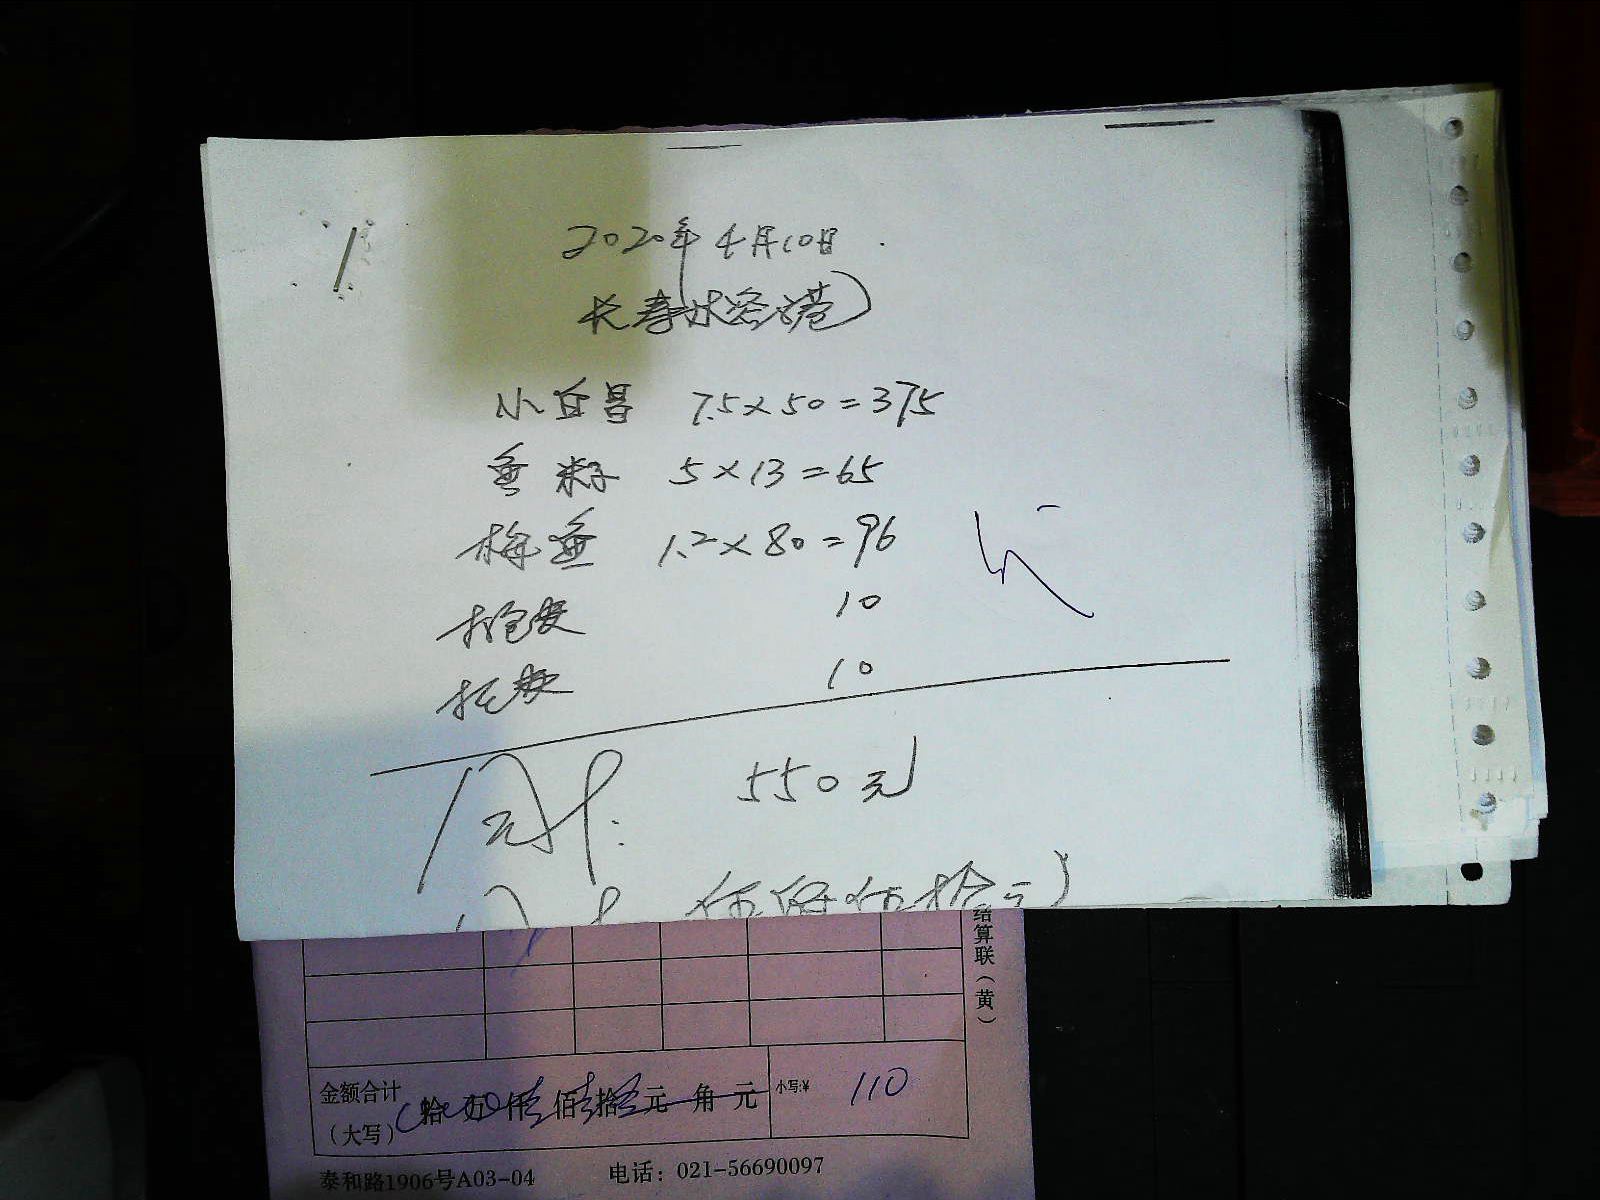 2020年4月10日
长春水台港
小立昌 7.5×50=375
鱼籽 5×13=65
梅鱼 1.2×80=96
打包费 10
托费 10
550元
伍佰伍拾元
结算联（黄）
金额合计
（大写） 拾 万 仟 佰 拾 元 角 元 小写:¥ 110
泰和路1906号A03-04 电话：021-56690097